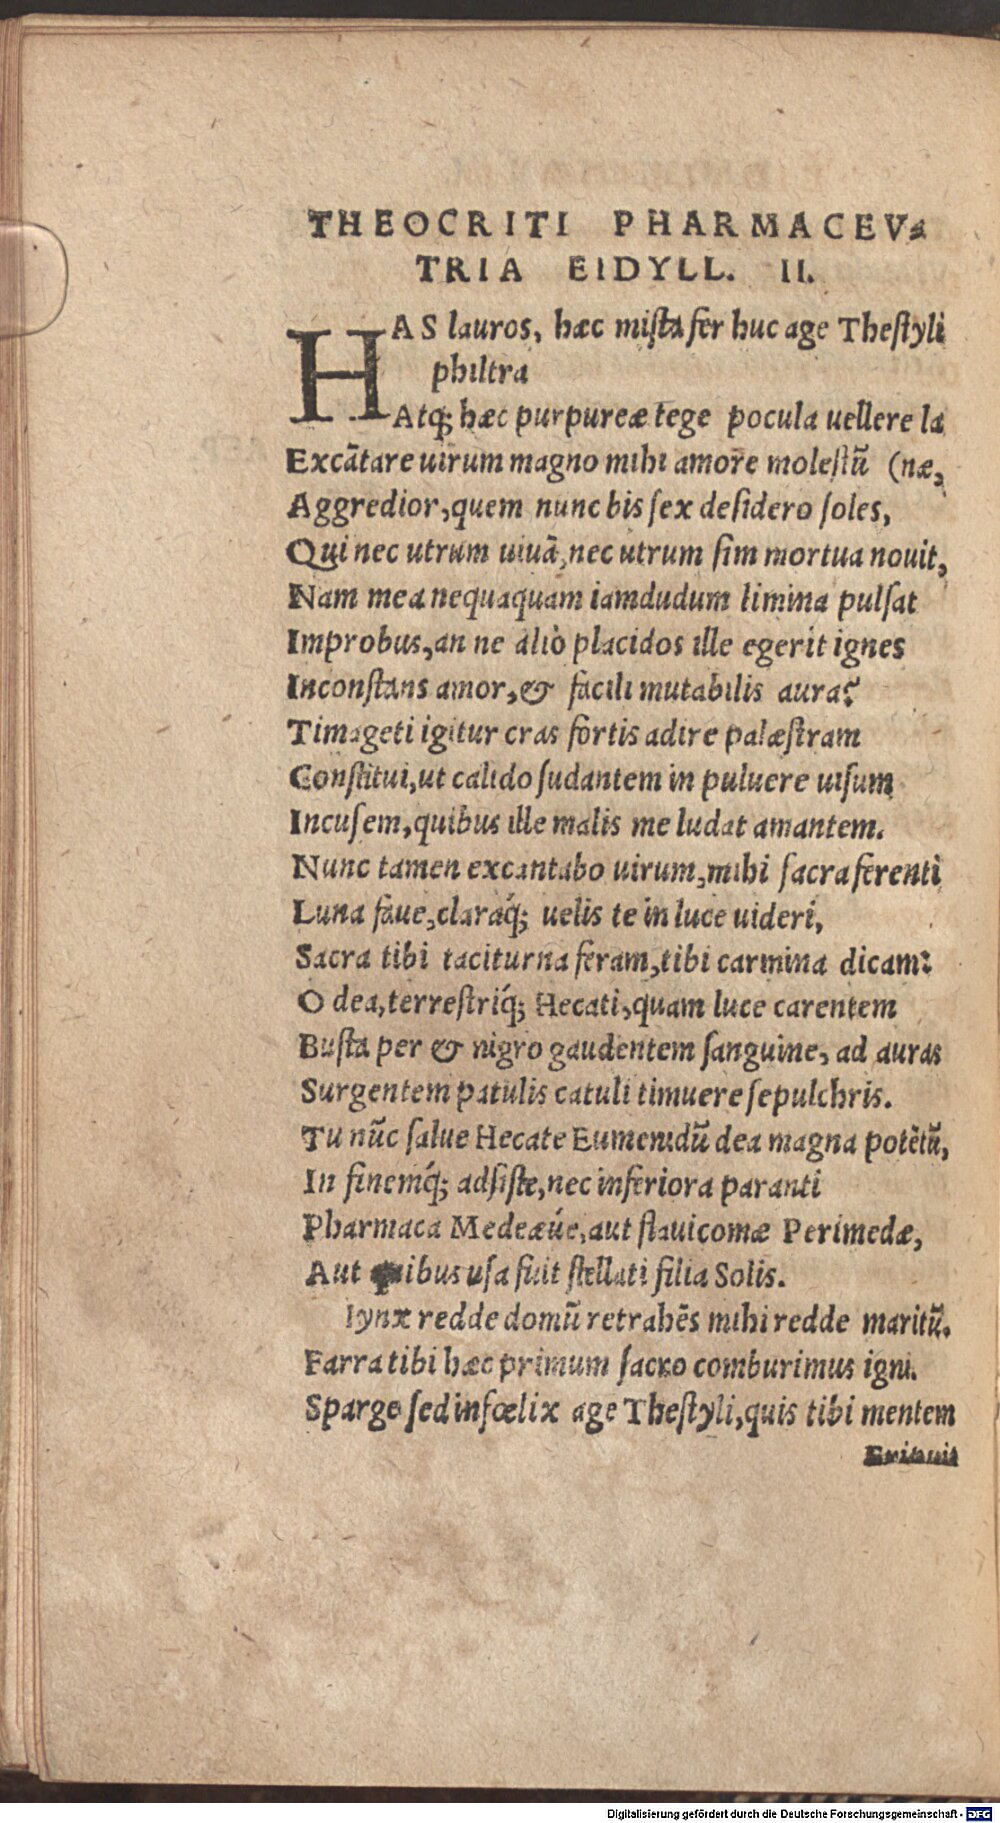 THEOCRITI PHARMACEV⸗
TRIA EIDYLL. II.
HAS lauros, hæc miſta fer huc age Theſtyli
philtra
Atq; hæc purpureæ tege pocula uellere la
Excãtare uirum magno mihi amore moleſtũ (næ,
Aggredior, quem nunc bis ſex deſidero ſoles,
Qui nec utrum uiuã, nec utrum ſim mortua nouit,
Nam mea nequaquam iamdudum limina pulſat
Improbus, an ne aliò placidos ille egerit ignes
Inconſtans amor, & facili mutabilis aura?
Timageti igitur cras fortis adire palæſtram
Conſtitui, ut calido ſudantem in puluere uiſum
Incuſem, quibus ille malis me ludat amantem.
Nunc tamen excantabo uirum, mihi ſacra ferenti
Luna faue, claraq́; uelis te in luce uideri,
Sacra tibi taciturna feram, tibi carmina dicam:
O dea, terreſtriq́; Hecati, quam luce carentem
Buſta per & nigro gaudentem ſanguine, ad auras
Surgentem patulis catuli timuere ſepulchris.
Tu nũc ſalue Hecate Eumenidũ dea magna potẽtũ,
In finemq́; adſiſte, nec inferiora paranti
Pharmaca Medeæúe, aut flauicomæ Perimedæ,
Aut quibus uſa fuit ſtellati filia Solis.
Iynx redde domũ retrahẽs mihi redde maritũ.
Farra tibi hæc primum ſacro comburimus igni.
Sparge ſed infœlix age Theſtyli, quis tibi mentem
Digitalisierung gefördert durch die Deutsche Forschungsgemeinschaft - DFG